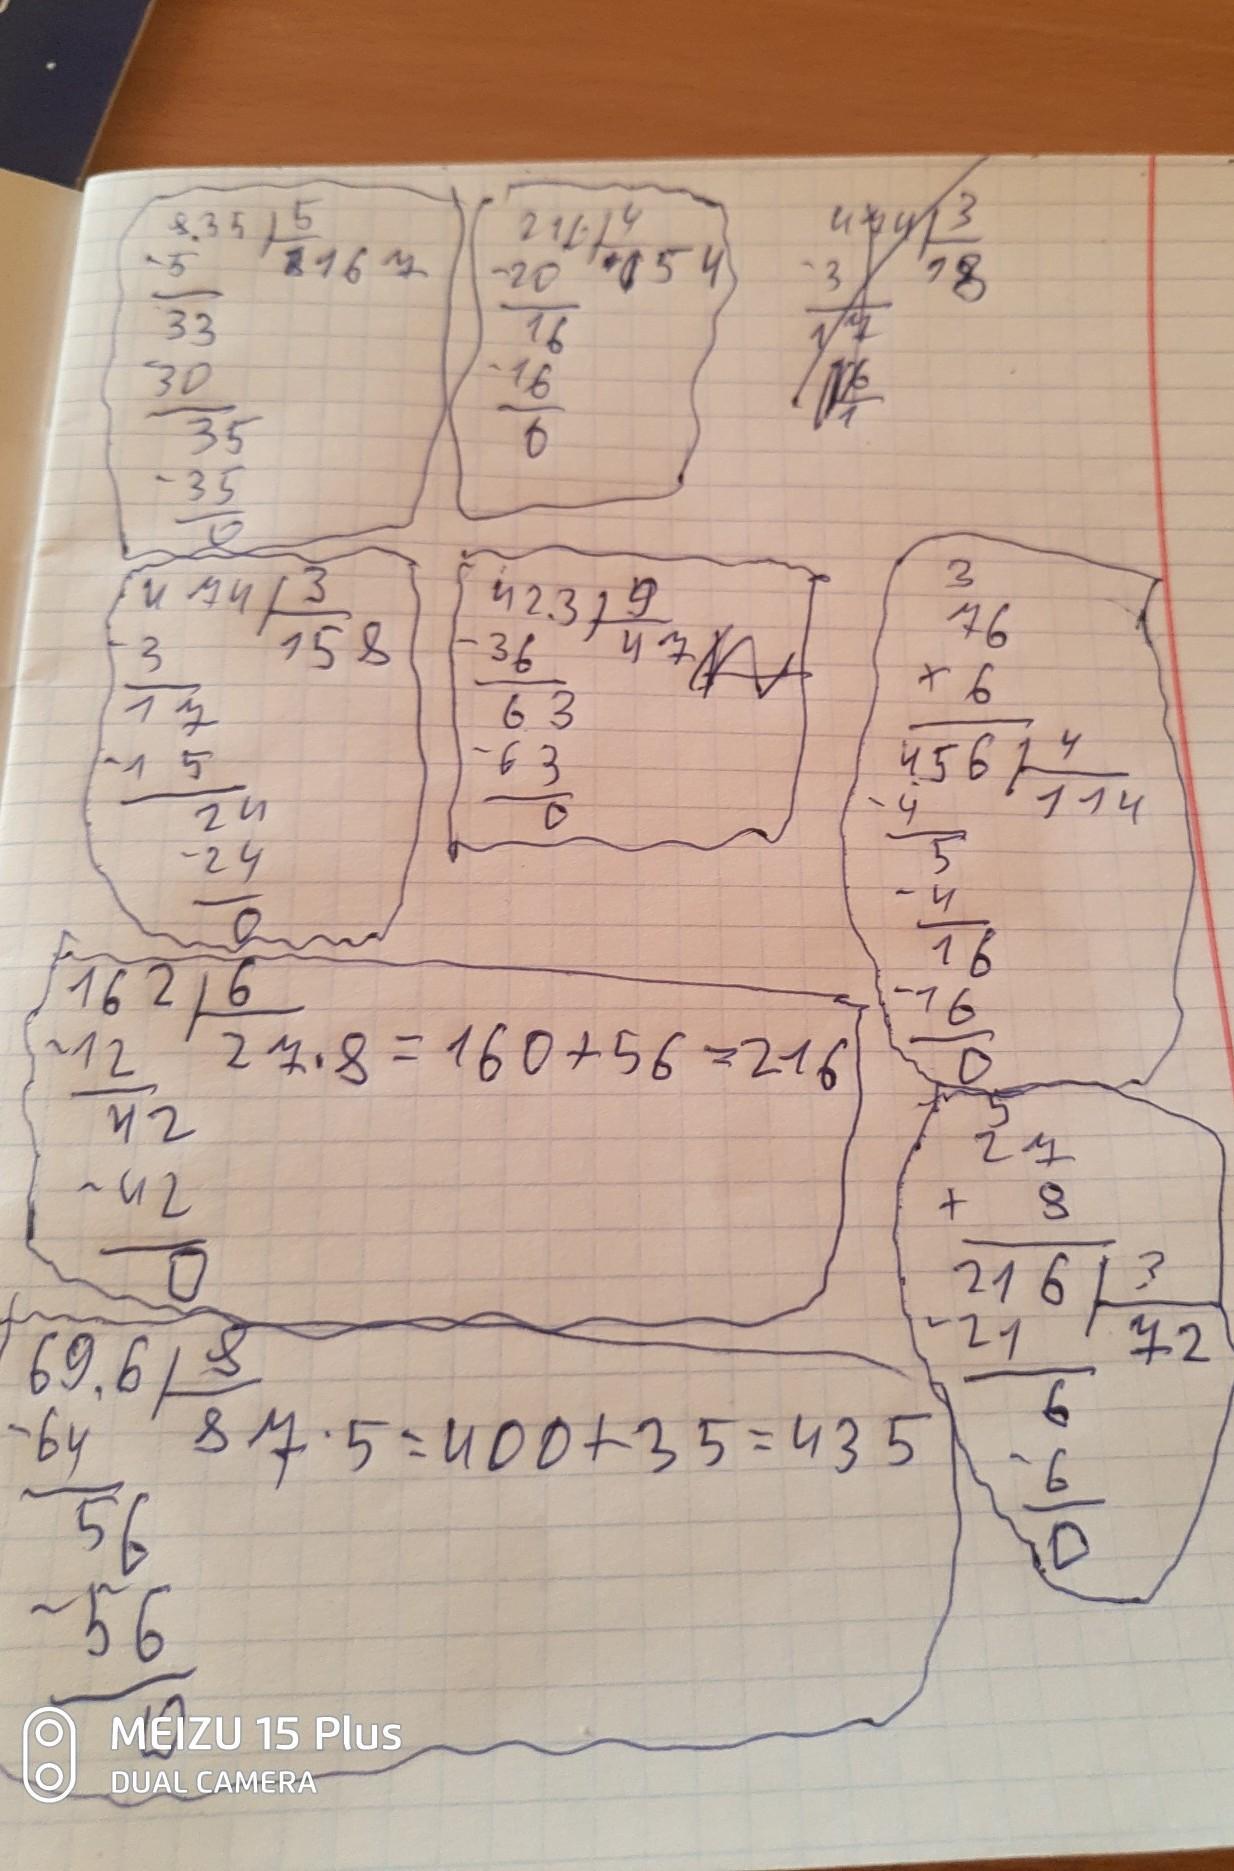 8.35 5
-5 167
33
30
35
-35
0
216 4
-20 54
16
-16
0
474 3
-3 18
17
16
1
474 3
-3 158
17
-15
24
-24
0
42.3 9
-36 47
63
-63
0
3
76
× 6
456 4
-4 114
5
-4
16
-16
0
162 6
-12 27·8=160+56=216
42
-42
0
5
27
+ 8
216 3
-21 72
6
-6
0
69.6 8
-64 87·5=400+35=435
56
-56
0
MEIZU 15 Plus
DUAL CAMERA